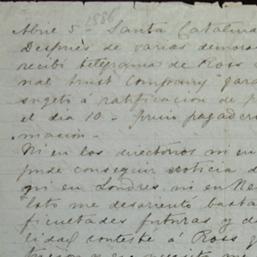 1886
Abril 5 - Santa Catalina
Después de varias demoras
recibí telegrama de Ross
nal Trust Company" gara
sugeto á ratificacion de p
el dia 10 -
macion -
Ni en los directorios ni en
pude conseguir noticia d
ni en Londres, ni en Ne
Esto me desalienta basta
ficultades futuras y de
lidad contesté á Ross q